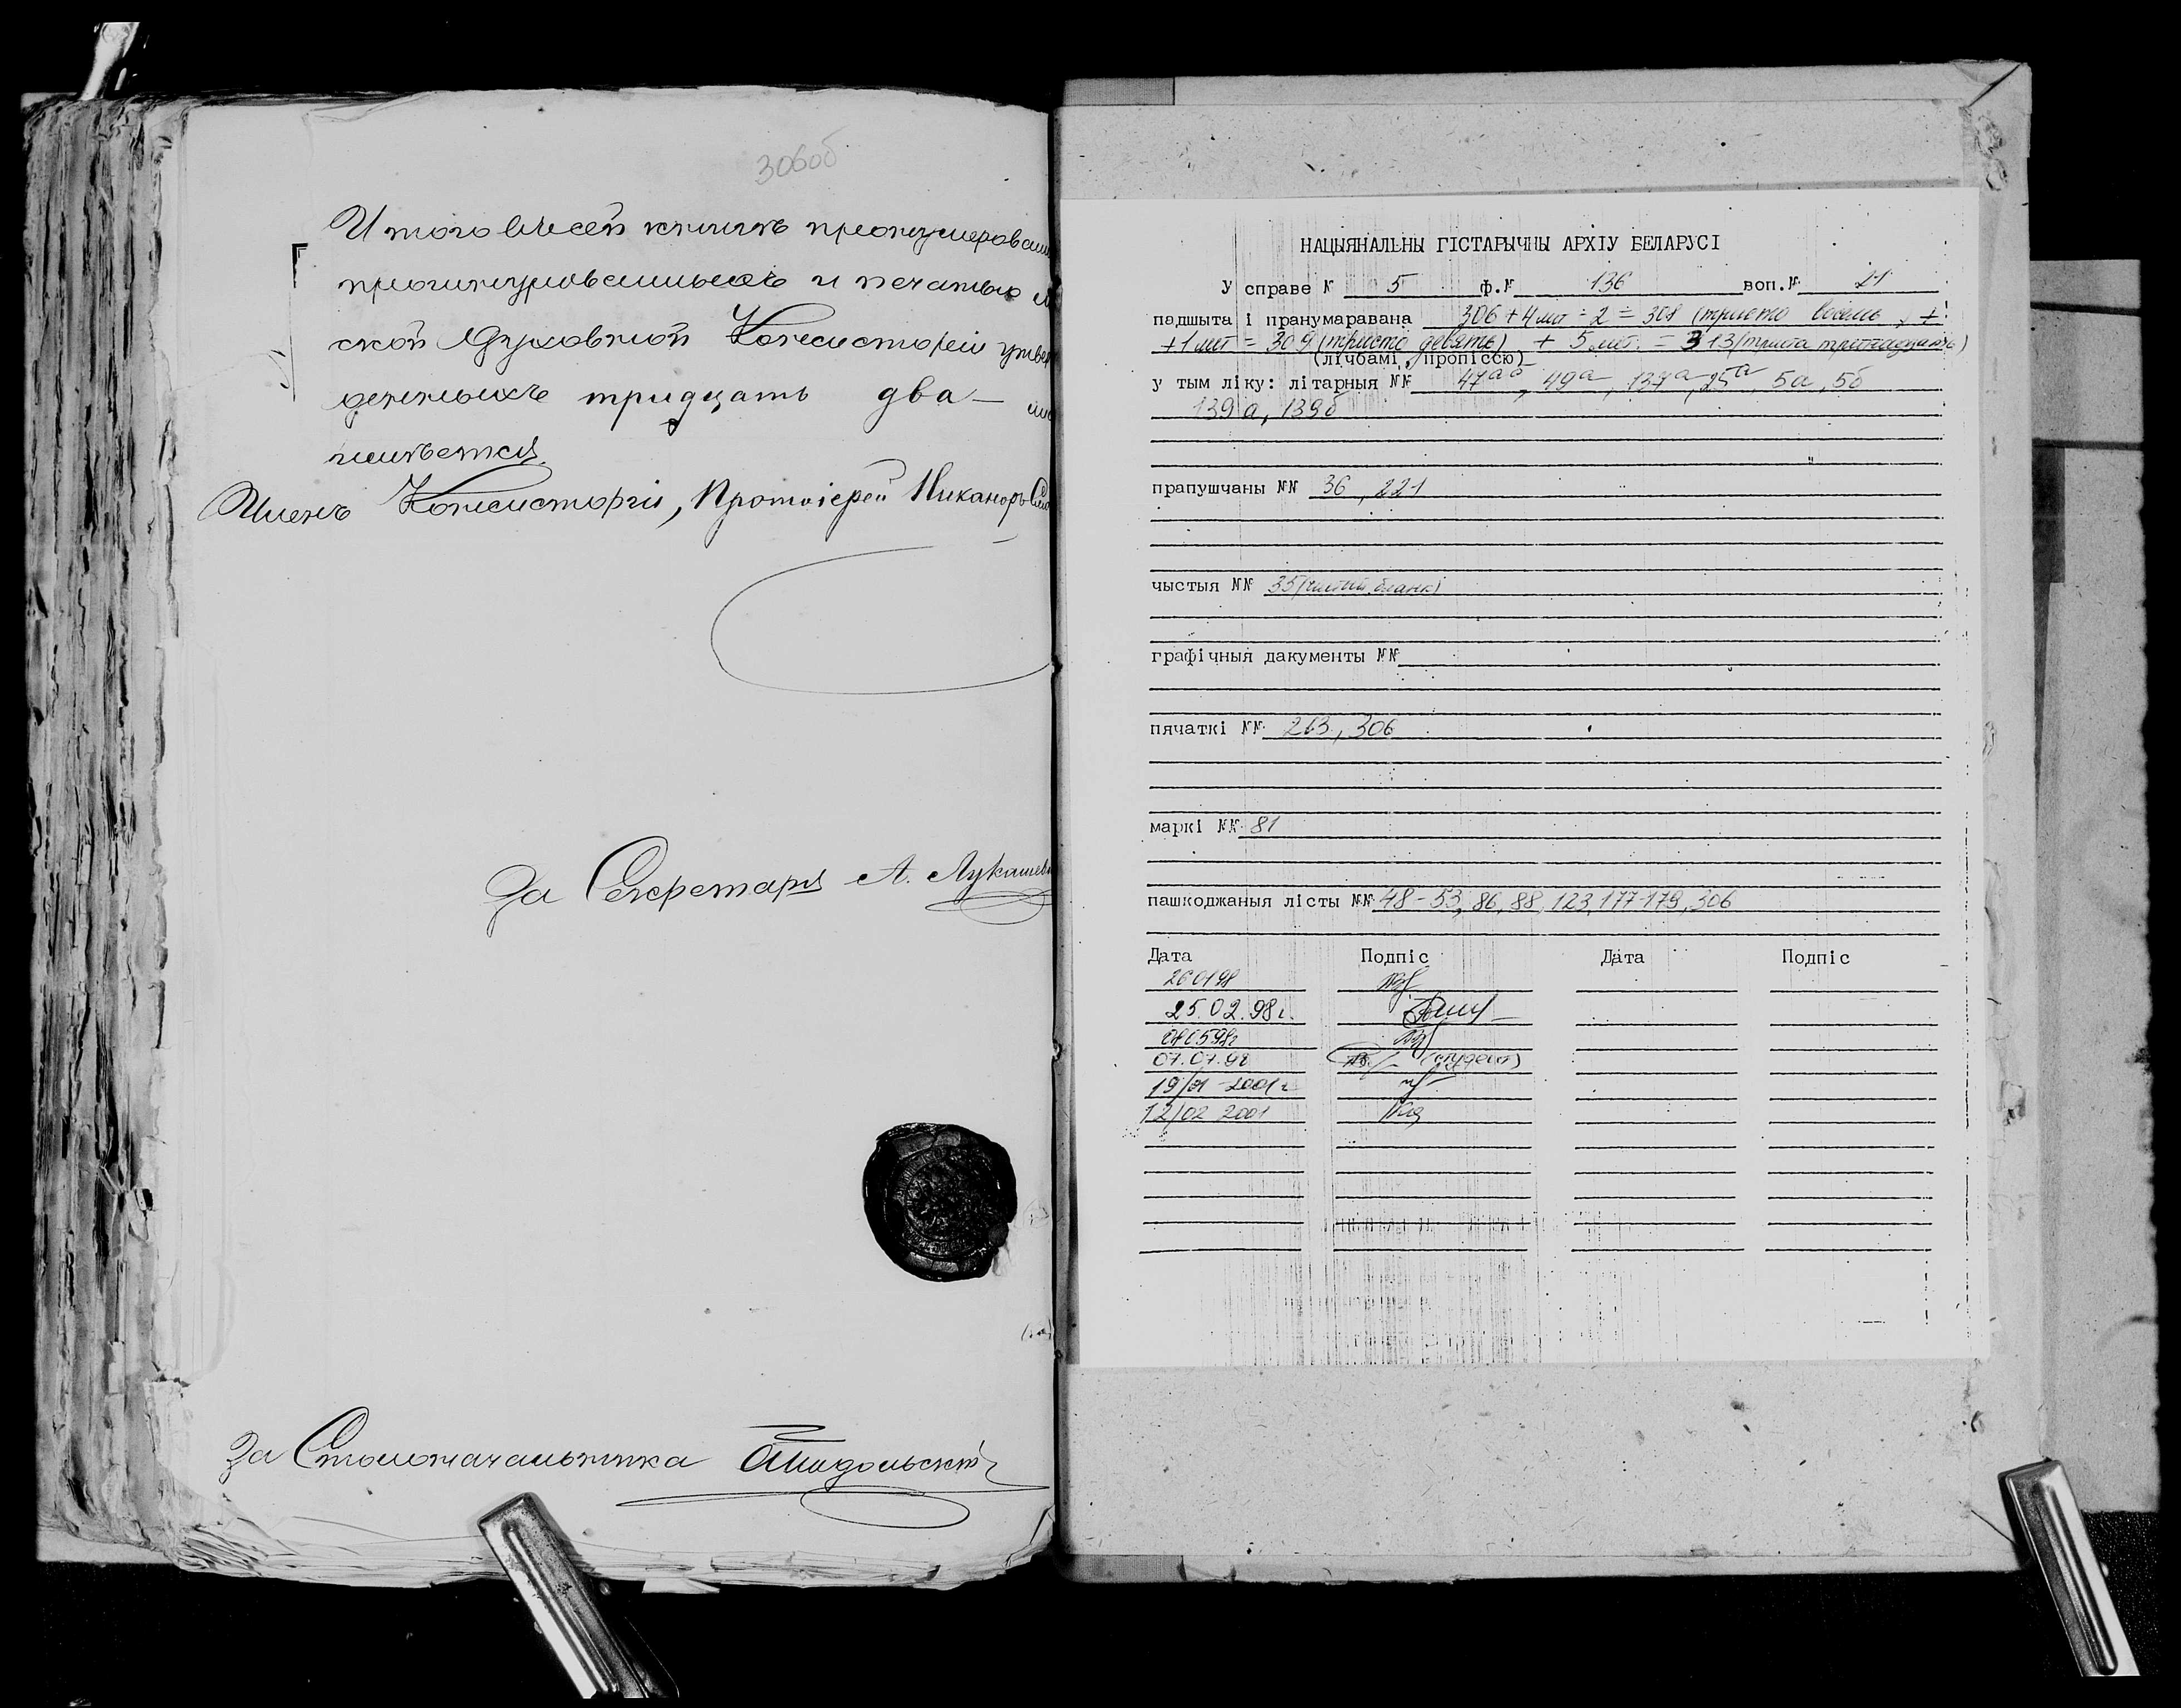 306об
Итого въ сей книгѣ пронумерован
прошнурованныхъ и печатью
ской Духовной Консисторіи утверж
денныхъ тридцать два —
имѣется.
Членъ Консисторіи, Протоіерей Никаноръ
За Секретаря А. Лукашеви
За Столоначальника
НАЦЫЯНАЛЬНЫ ГІСТАРЫЧНЫ АРХІУ БЕЛАРУСІ
У справе № 5 ф.№ 136 воп.№ 21
падшыта і пранумаравана 306 + 4 лит - 2 = 308 (триста восемь) +
+ 1 лит = 309 (триста девять) + 5 лит. = 313 (триста тринадцать)
(лічбамі, пропіссю)
у тым ліку: літарныя №№ 47аб, 49а, 137а, 25а, 5а, 5б
139а, 139б
прапушчаны №№ 36, 221
чыстыя №№ 35 (чистый бланк)
графічныя дакументы №№
пячаткі №№ 263, 306
маркі №№ 81
пашкоджаныя лісты №№ 48-53, 86, 88, 123, 177-179, 306
Дата Подпіс Дата Подпіс
260198
25.02.98г.
07.07.98 (студент)
19/01 2001г
12/02 2001